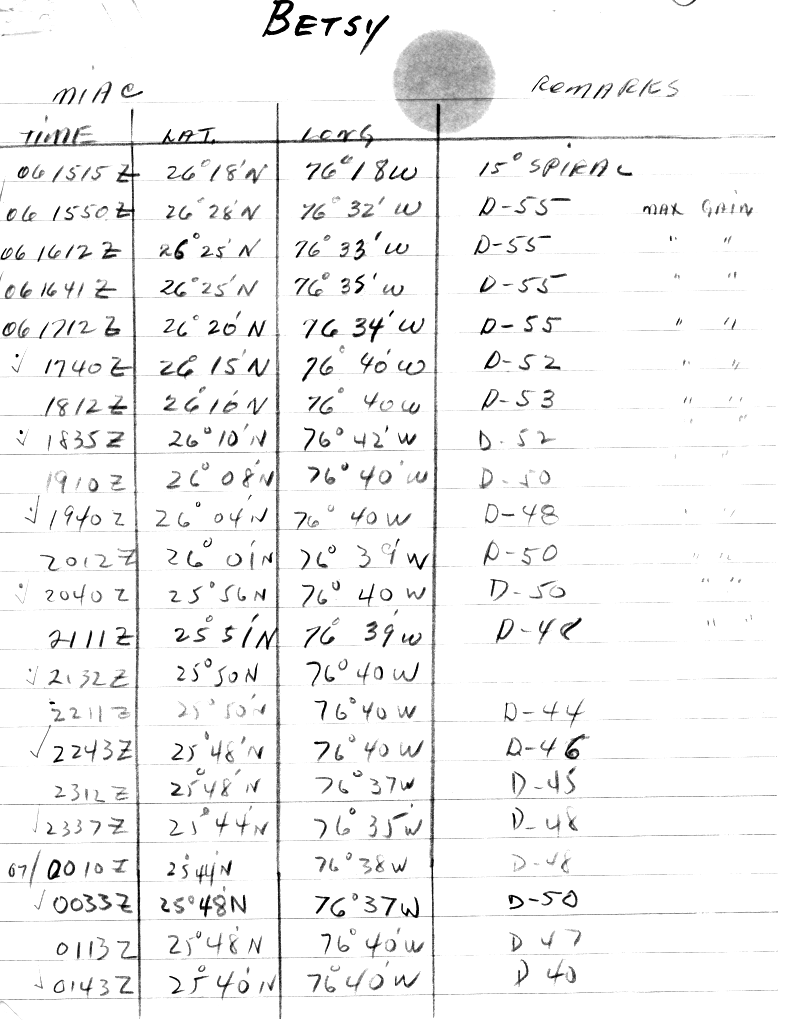 BETSY
MIAC REMARKS
TIME LAT. LONG
061515Z 26°18'N 76°18W 15° SPIRAL
061550Z 26°28'N 76°32'W D-55 MAX GAIN
061612Z 26°25'N 76°33'W D-55 " "
061641Z 26°25'N 76°35'W D-55 " "
061712Z 26°20'N 76 34'W D-55 " "
√ 1740Z 26°15'N 76°40'W D-52 " "
1812Z 26°10'N 76°40W D-53 " "
√ 1835Z 26°10'N 76°42'W D-52 " "
1910Z 26°08'N 76°40'W D-50
√ 1940Z 26°04'N 76°40W D-48 " "
2012Z 26°01'N 76°39'W D-50 " "
√ 2040Z 25°56N 76°40W D-50 " "
2111Z 25°51'N 76°39'W D-48 " "
√ 2132Z 25°50N 76°40W
2211Z 25°50'N 76°40W D-44
√ 2243Z 25°48'N 76°40W D-46
2312Z 25°48'N 76°37W D-45
√ 2337Z 25°44'N 76°35'W D-48
07/0010Z 25°44'N 76°38W D-48
√ 0033Z 25°48'N 76°37W D-50
0113Z 25°48'N 76°40'W D 47
√ 0143Z 25°40'N 76°40'W D 40